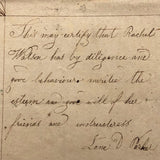 This may certify that Rachel
Watson has by diligence and
good behaviour merited the
esteem and good will of her
friends and instructress
Lane D.